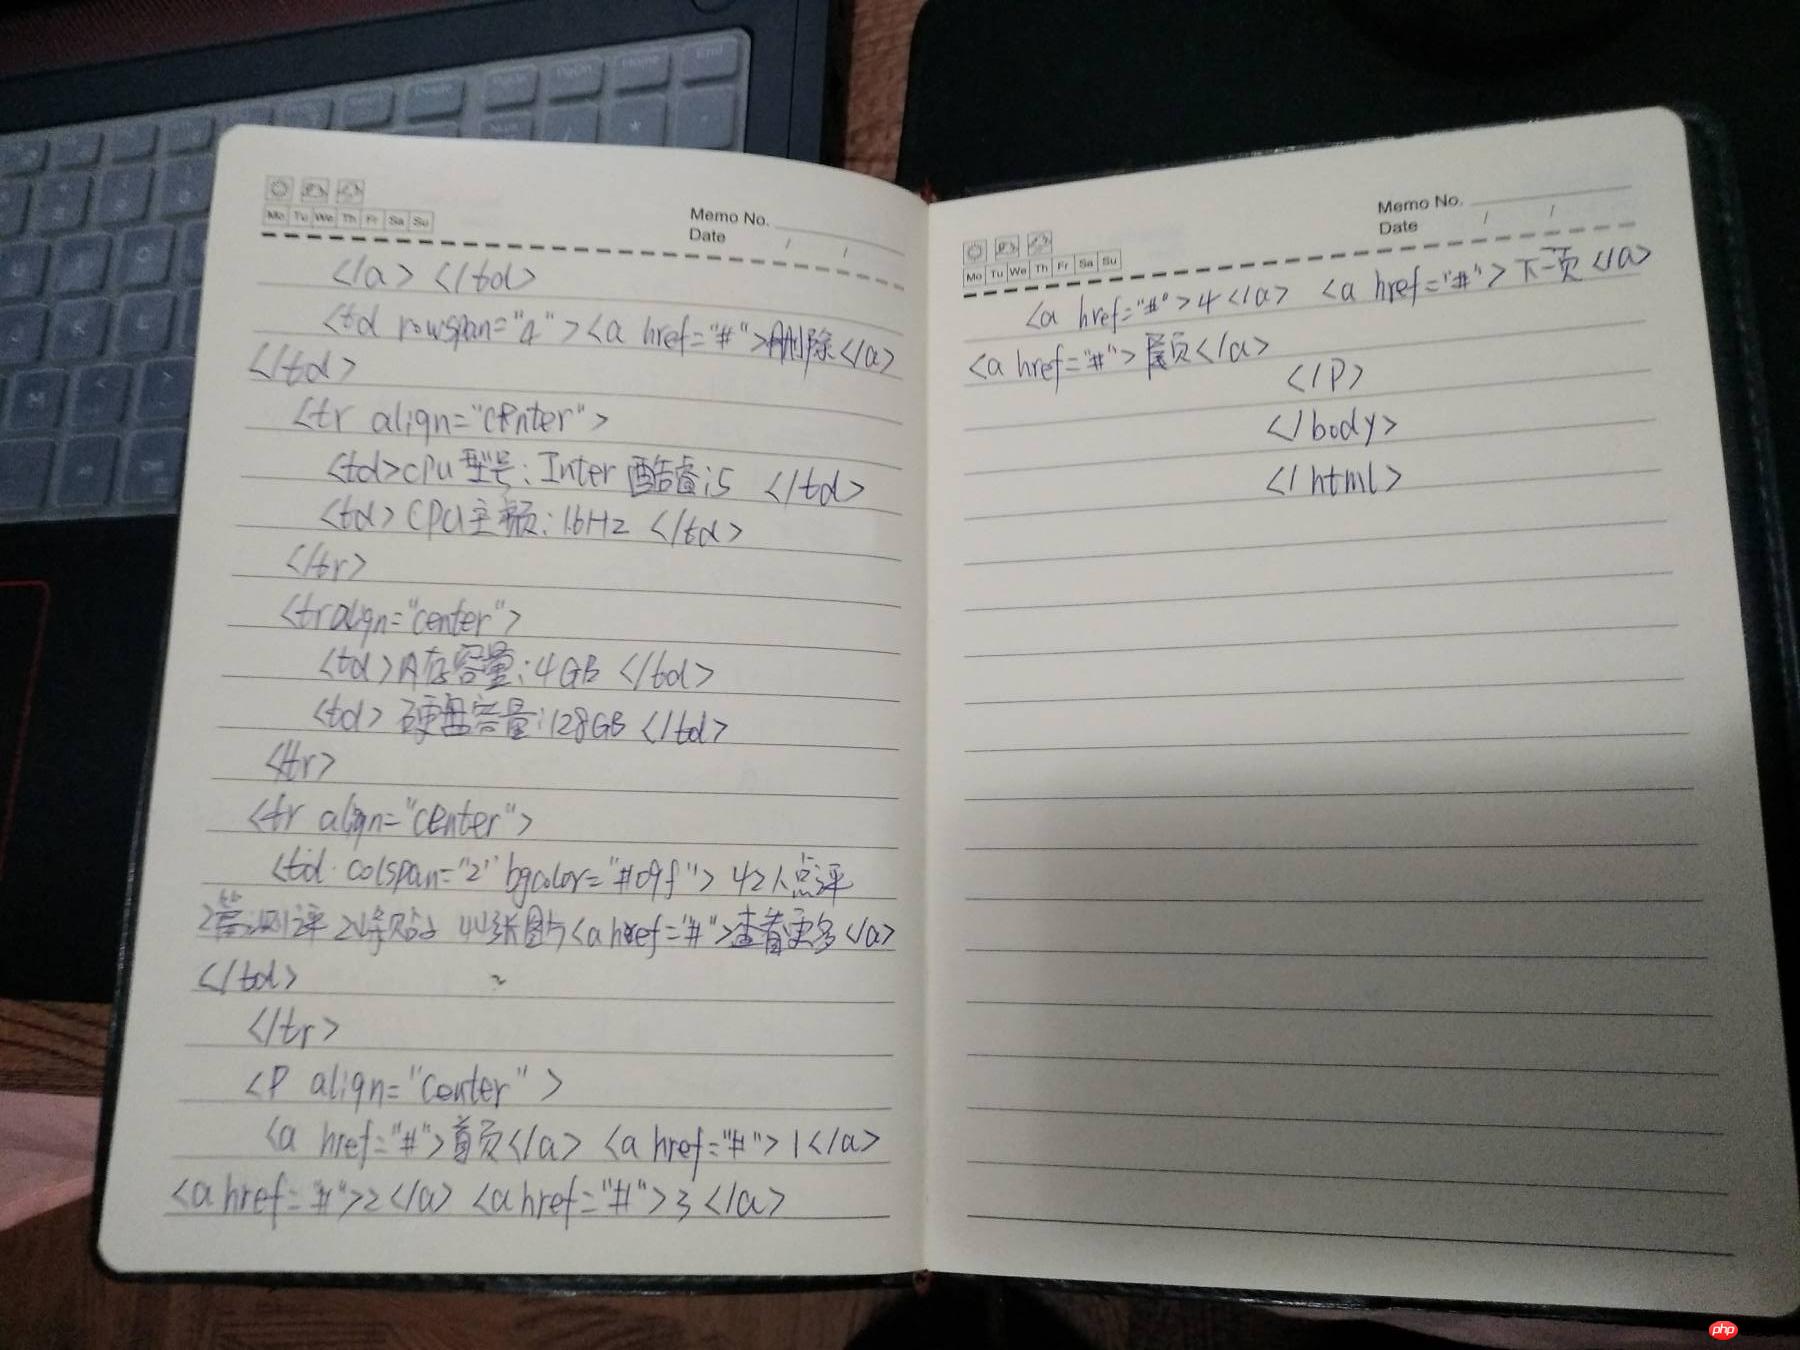 End
Mo Tu We Th Fr Sa Su
Memo No.
Date / /
</a> </td>
<td rowspan="4"><a href="#">删除</a>
</td>
<tr align="center">
<td>cpu型号:Inter 酷睿i5 </td>
<td>CPU主频:1.6Hz </td>
</tr>
<tr align="center">
<td>内存容量:4GB </td>
<td>硬盘容量:128GB </td>
</tr>
<tr align="center">
<td colspan="2" bgcolor="#09f"> 42人点评
2篇测评 24 44张图片<a href="#">查看更多</a>
</td>
</tr>
<P align="center" >
<a href="#">首页</a> <a href="#">1</a>
<a href="#">2</a> <a href="#">3</a>
Mo Tu We Th Fr Sa Su
Memo No.
Date / /
<a href="#">4</a> <a href="#">下一页</a>
<a href="#">尾页</a>
</P>
</body>
</html>
php